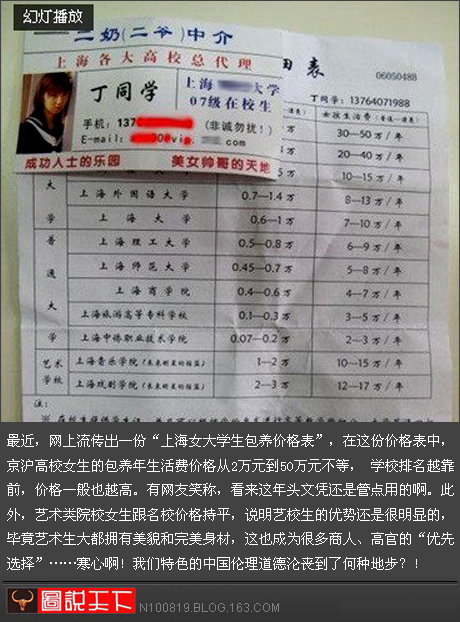 幻灯播放
二奶(二爷)中介
上海各大高校总代理
丁同学
上海 大学
07级在校生
手机：137 (非诚勿扰！)
E-mail: @vip. .com
成功人士的乐园 美女帅哥的天地
表
0605048B
丁同学：13764071988
女校生活费
30—50万/年
20—40万/年
10—15万/年
大 上海外国语大学 0.7—1.4万 8—13万/年
学 上海大学 0.6—1万 7—10万/年
普 上海理工大学 0.5—0.8万 6—9万/年
通 上海师范大学 0.45—0.7万 5—8万/年
大 上海商学院 0.4—0.6万 4—7万/年
上海旅游高等专科学校 0.1—0.3万 3—5万/年
学 上海中侨职业技术学院 0.07—0.2万 2—3万/年
艺术学校 上海音乐学院 1—2万 10—15万/年
上海戏剧学院 2—3万 12—17万/年
注：
最近，网上流传出一份“上海女大学生包养价格表”，在这份价格表中，
京沪高校女生的包养年生活费价格从2万元到50万元不等， 学校排名越靠
前，价格一般也越高。有网友笑称，看来这年头文凭还是管点用的啊。此
外，艺术类院校女生跟名校价格持平，说明艺校生的优势还是很明显的，
毕竟艺术生大都拥有美貌和完美身材，这也成为很多商人、高官的“优先
选择”……寒心啊！我们特色的中国伦理道德沦丧到了何种地步？！
圖說天下
N100819.BLOG.163.COM